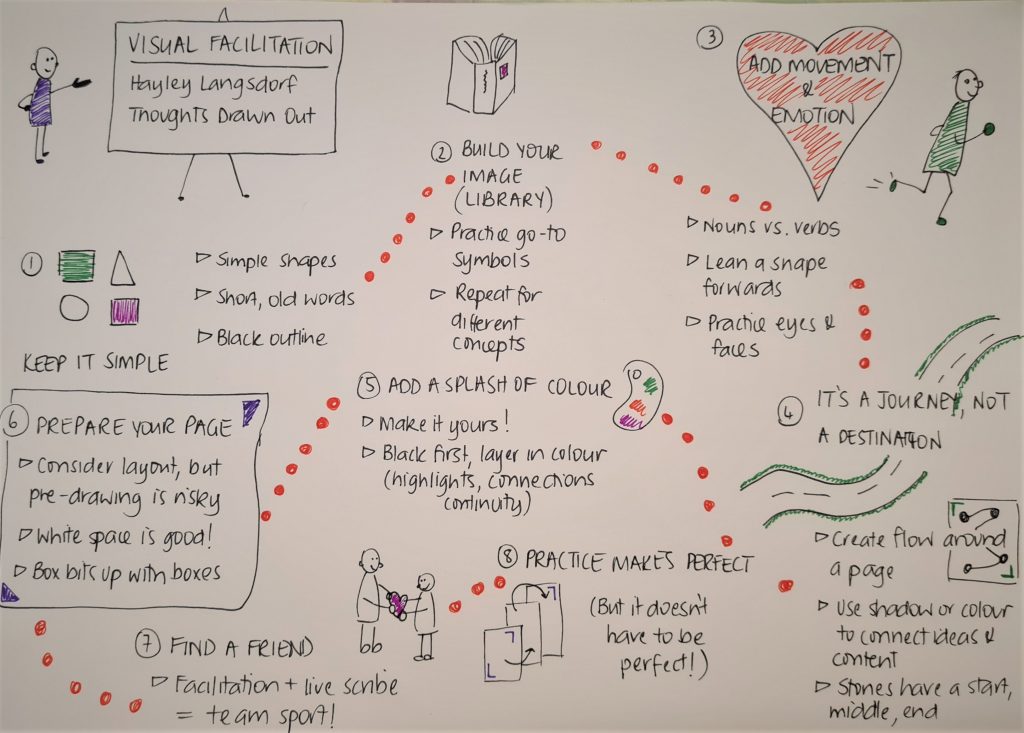 VISUAL FACILITATION
Hayley Langsdorf
Thoughts Drawn Out
①
KEEP IT SIMPLE
▷ Simple shapes
▷ Short, old words
▷ Black outline
② BUILD YOUR
IMAGE
(LIBRARY)
▷ Practice go-to
symbols
▷ Repeat for
different
concepts
③
ADD MOVEMENT
&
EMOTION
▷ Nouns vs. verbs
▷ Lean a shape
forwards
▷ Practice eyes &
faces
④ IT'S A JOURNEY, NOT
A DESTINATION
▷ Create flow around
a page
▷ Use shadow or colour
to connect ideas &
content
▷ Stories have a start,
middle, end
⑤ ADD A SPLASH OF COLOUR
▷ Make it yours!
▷ Black first, layer in colour
(highlights, connections
continuity)
⑥ PREPARE YOUR PAGE
▷ Consider layout, but
pre-drawing is risky
▷ White space is good!
▷ Box bits up with boxes
⑦ FIND A FRIEND
▷ Facilitation + live scribe
= team sport!
⑧ PRACTICE MAKES PERFECT
(But it doesn't
have to be
perfect!)